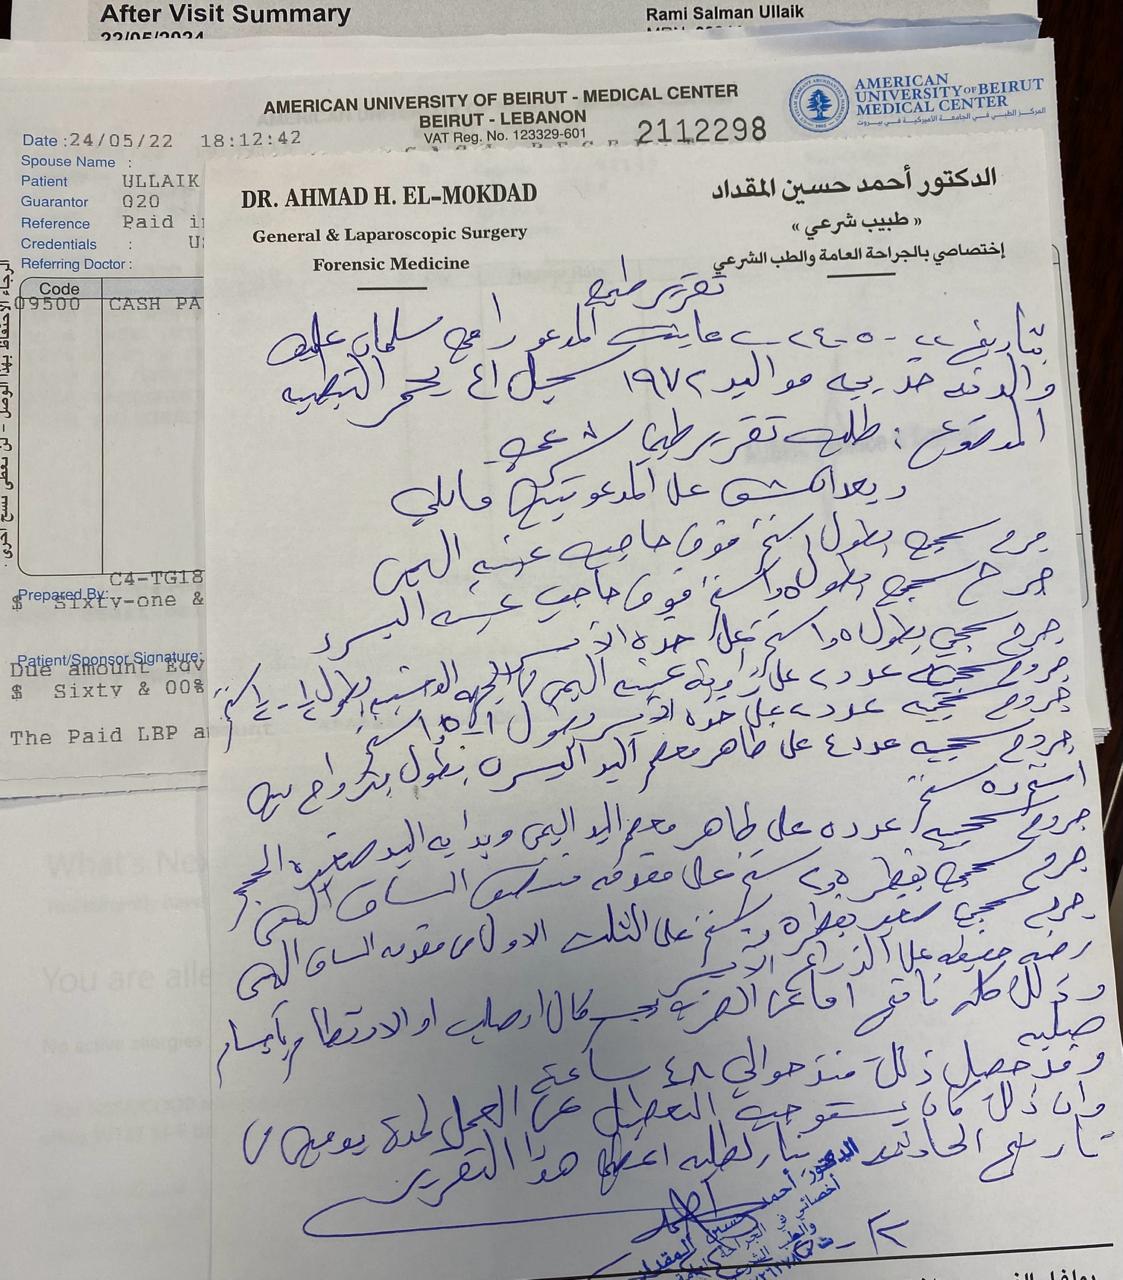 After Visit Summary
Rami Salman Ullaik
22/05/2024
AMERICAN UNIVERSITY OF BEIRUT - MEDICAL CENTER
BEIRUT - LEBANON
VAT Reg. No. 123329-601
2112298
AMERICAN
UNIVERSITY OF BEIRUT
MEDICAL CENTER
المركز الطبي في الجامعة الأميركية في بيروت
Date : 24/05/22 18:12:42
Spouse Name :
Patient ULLAIK
Guarantor 020
Reference Paid i
Credentials : U
Referring Doctor :
Code
09500 CASH PA
C4-TG18
Prepared By:
$ Sixty-one &
Patient/Sponsor Signature:
Due amount Eqv
$ Sixty & 00%
The Paid LBP a
DR. AHMAD H. EL-MOKDAD
General & Laparoscopic Surgery
Forensic Medicine
الدكتور أحمد حسين المقداد
« طبيب شرعي »
إختصاصي بالجراحة العامة والطب الشرعي
تقرير طبي
بتاريخ ٢٢ - ٥ - ٢٠٢٤ عاينت المدعو رامي سلمان عليق
والدته خديجة مواليد ١٩٧٢ سجل ٤١ يحمر النبطية
الموضوع : طلب تقرير طبي شرعي
وبعد الكشف على المدعو تبين ما يلي
جرح سحجي بطول ١ سنتم فوق حاجب عينه اليمنى
جرح سحجي بطول ٥و١ سنتم فوق حاجب عينه اليسرى
جرح سحجي بطول ٥و١ سنتم على خده الأيسر
جروح سحجية عدد ٢ على زاوية عينه اليمنى
جروح سحجية عدد ٢ على خده الأيسر بطول
جروح سحجية عدد ٤ على ظاهر معصم اليد اليسرى بطول يتراوح بين
جروح سحجية عدد ٥ على ظاهر معصم اليد اليمنى وبداية اليد صغيرة الحجم
جرح سحجي بقطر ٥و٢ سنتم على مقدمة منتصف الساق اليمنى
جرح سحجي صغير بقطر ٥و سنتم على الثلث الأول من مقدمة الساق اليمنى
رضة خفيفة على الذراع الأيسر
وذلك كله ناتج اما عن الضرب بجسم كال او صلب او الارتطام بأجسام
صلبة
وقد حصل ذلك منذ حوالي ٤٨ ساعة
وان ذلك كان يستوجب التعطيل عن العمل لمدة يومين من
تاريخ الحادث بناء لطلبه اعطي هذا التقرير
الدكتور أحمد حسين المقداد
أخصائي في الجراحة العامة
والطب الشرعي